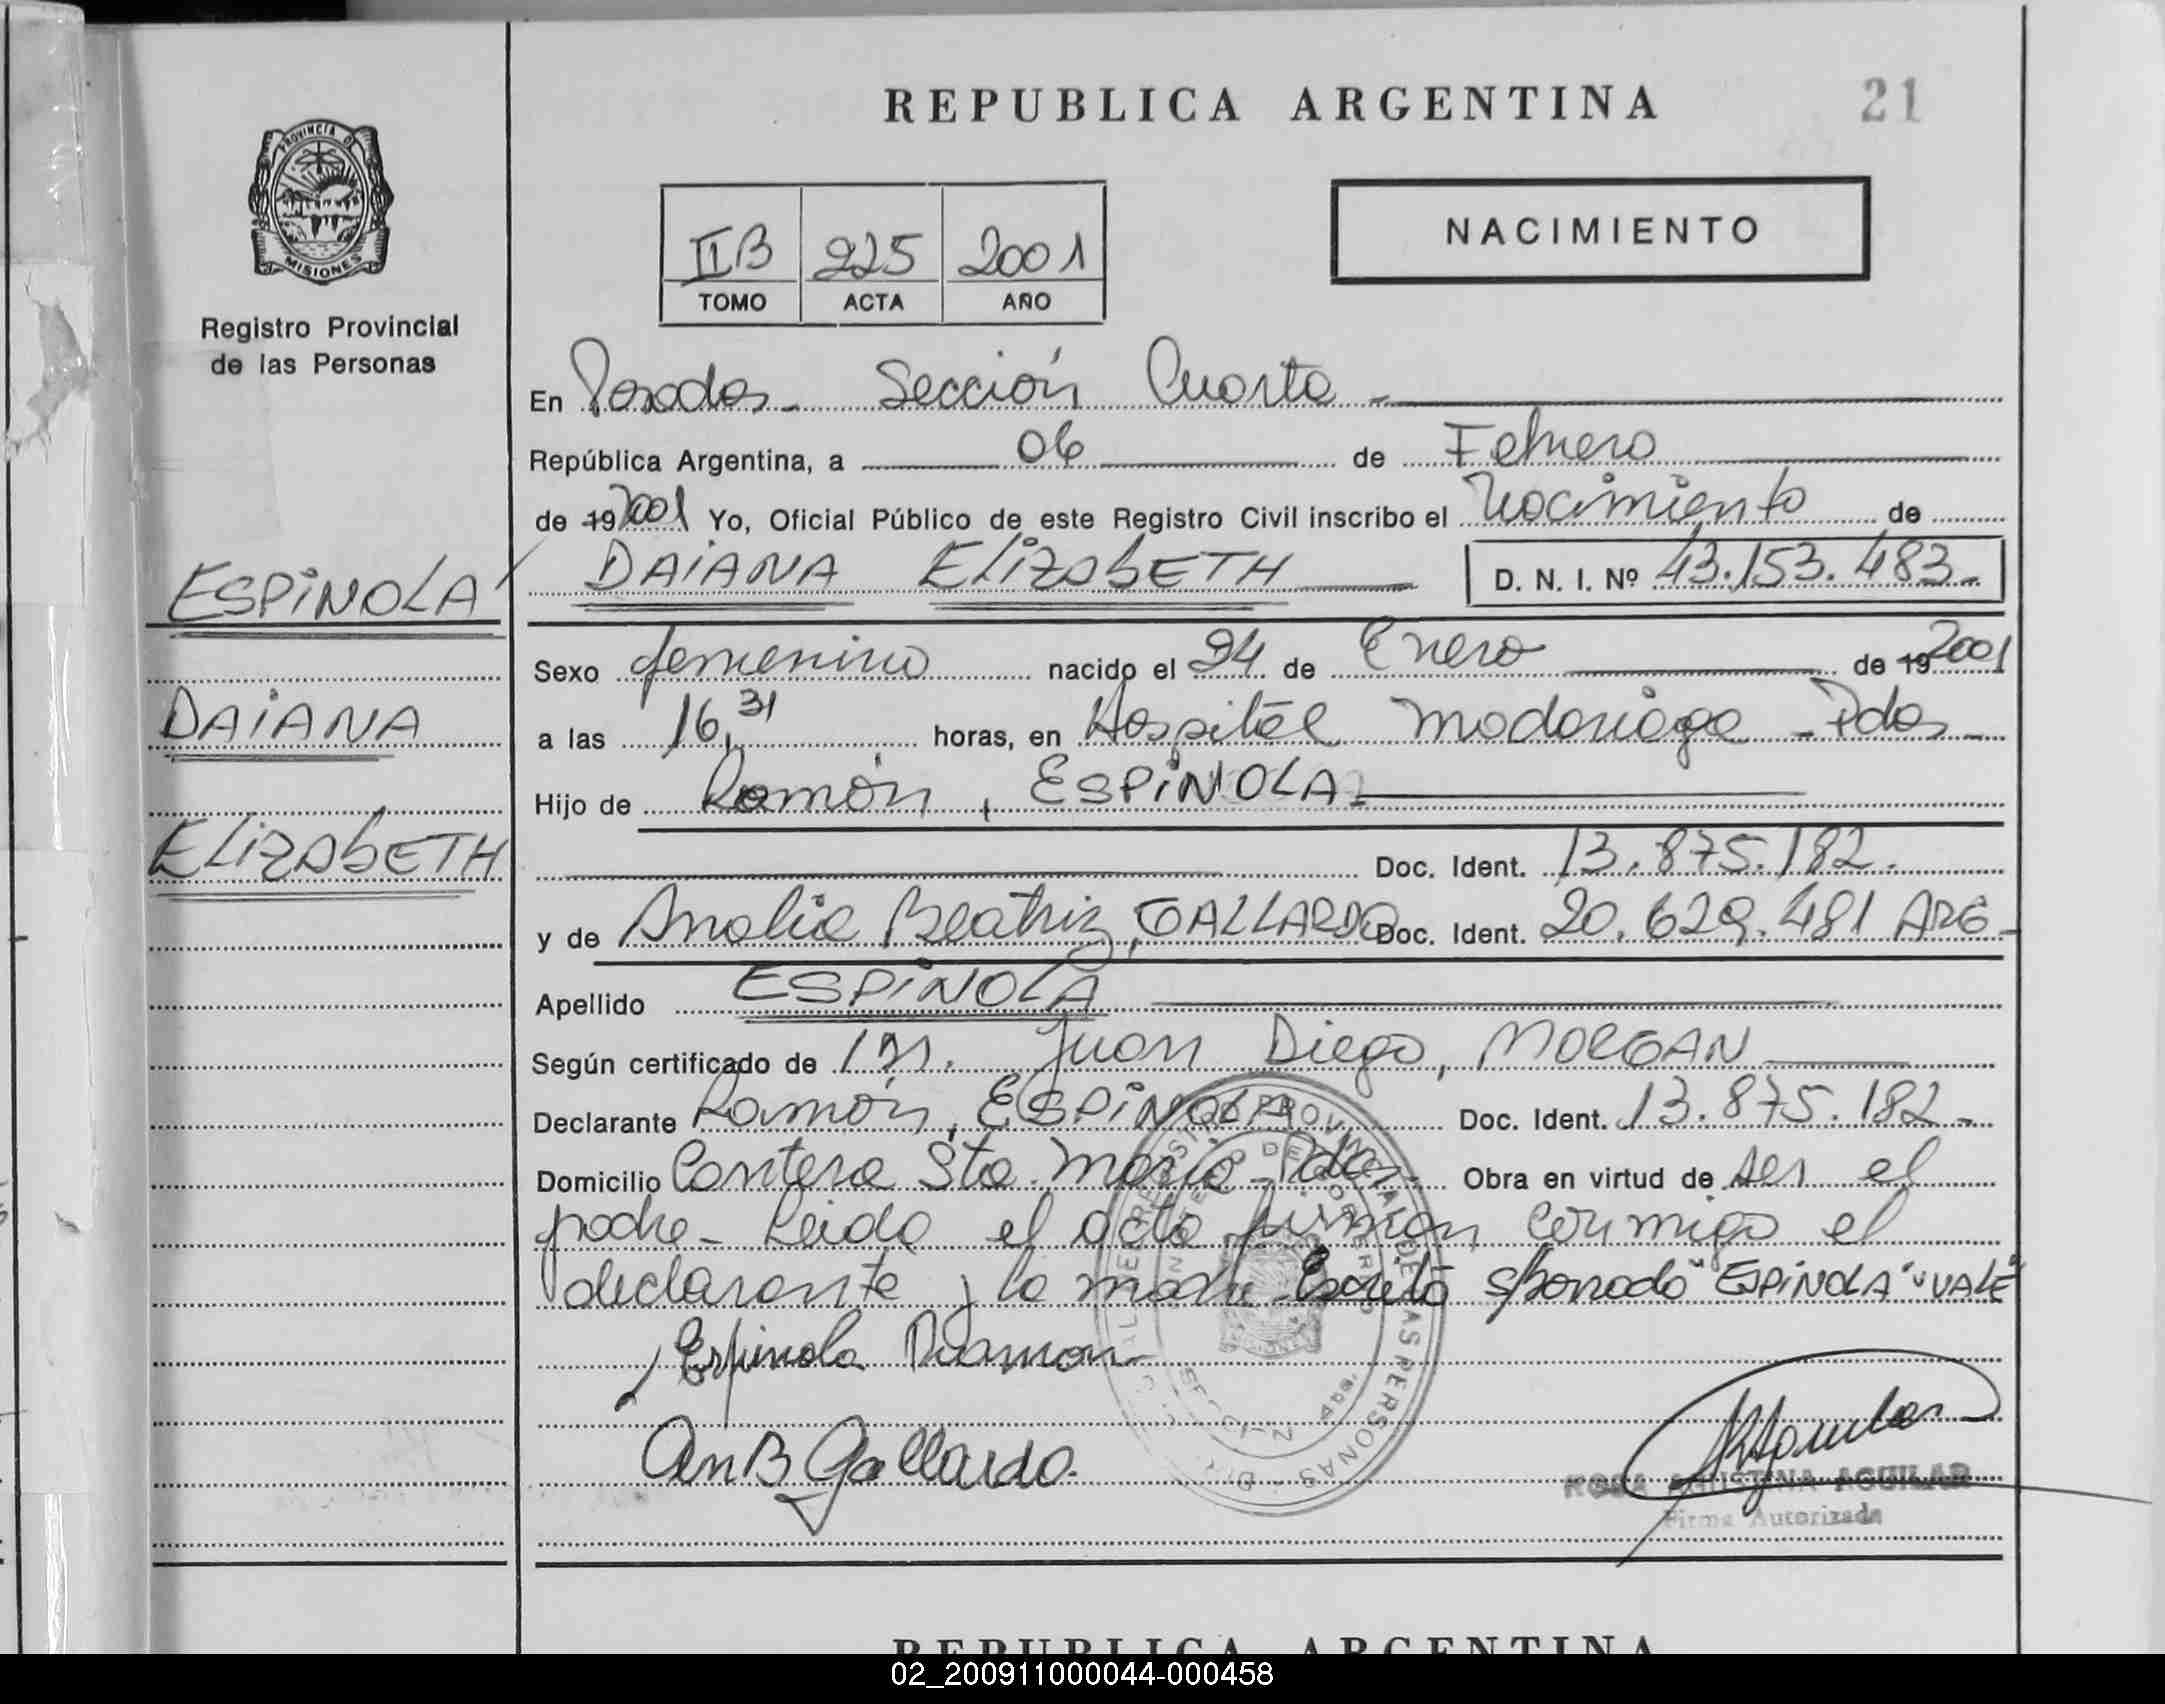 REPUBLICA ARGENTINA
21
PROVINCIA DE
MISIONES
Registro Provincial
de las Personas
IIB 225 2001
TOMO ACTA AÑO
NACIMIENTO
En Posadas - Sección Cuarta -
República Argentina, a 06 de Febrero
de 19 2001 Yo, Oficial Público de este Registro Civil inscribo el Nacimiento de
ESPINOLA
DAIANA ELIZABETH D. N. I. Nº 43.153.483-
Sexo femenino nacido el 24 de Enero de 19 2001
DAIANA
a las 16,31 horas, en Hospital Madariaga - Pdas -
Hijo de Ramón, ESPINOLA -
ELIZABETH
Doc. Ident. 13.875.182.
y de Analia Beatriz, GALLARDO Doc. Ident. 20.629.481 ARG -
Apellido ESPINOLA
Según certificado de Dr. Juan Diego, MORGAN
Declarante Ramón, ESPINOLA Doc. Ident. 13.875.182 -
Domicilio Cantera Sta. Maria - Pdas - Obra en virtud de ser el
padre - Leida el acta firman conmigo el
declarante y la madre "ESPINOLA" "VALE"
Espinola Ramon
An B Gallardo.
ROSA AGUSTINA AGUILAR
Firma Autorizada
REPUBLICA ARGENTINA
02_200911000044-000458